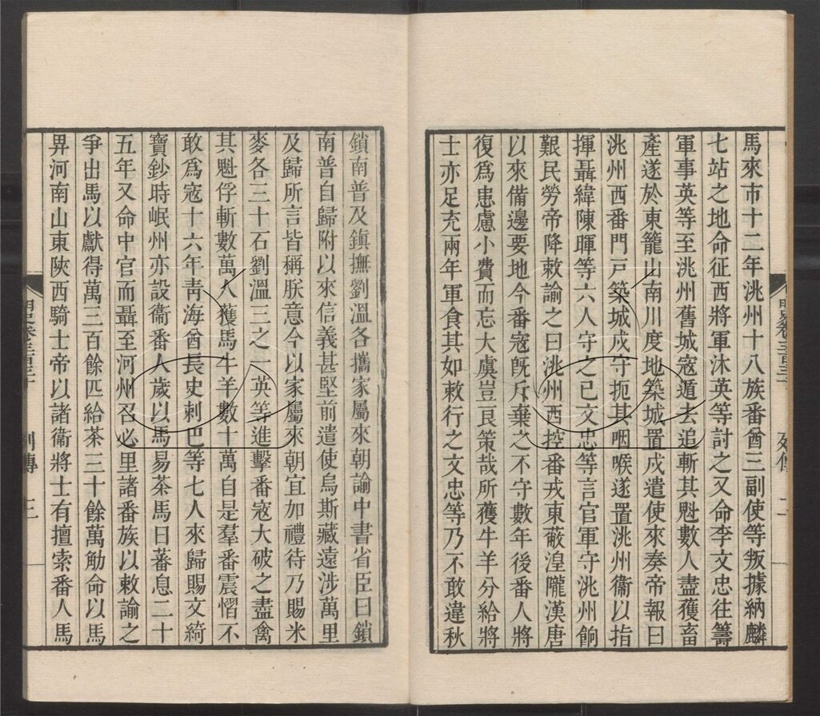 馬來市十二年洮州十八族番酋三副使等叛據納麟
七站之地命征西將軍沐英等討之又命李文忠往籌
軍事英等至洮州舊城寇遁去追斬其魁數人盡獲畜
產遂於東籠山南川度地築城置戍遣使來奏帝報曰
洮州西番門戶築城戍守扼其咽喉遂置洮州衞以指
揮聶緯陳暉等六人守之已文忠等言官軍守洮州餉
艱民勞帝降敕諭之曰洮州西控番戎東蔽湟隴漢唐
以來備邊要地今番寇旣斥棄之不守數年後番人將
復爲患慮小費而忘大虞豈良策哉所獲牛羊分給將
士亦足充兩年軍食其如敕行之文忠等乃不敢違秋
明史卷三百三十
列傳
二
鎖南普及鎮撫劉溫各攜家屬來朝諭中書省臣曰鎖
南普自歸附以來信義甚堅前遣使烏斯藏遠涉萬里
及歸所言皆稱朕意今以家屬來朝宜加禮待乃賜米
麥各三十石劉溫三之一英等進擊番寇大破之盡禽
其魁俘斬數萬人獲馬牛羊數十萬自是羣番震慴不
敢爲寇十六年靑海酋長史剌巴等七人來歸賜文綺
寶鈔時岷州亦設衞番人歲以馬易茶馬日蕃息二十
五年又命中官而聶至河州召必里諸番族以敕諭之
爭出馬以獻得萬三百餘匹給茶三十餘萬觔命以馬
畀河南山東陝西騎士帝以諸衞將士有擅索番人馬
明史卷三百三十
列傳
三